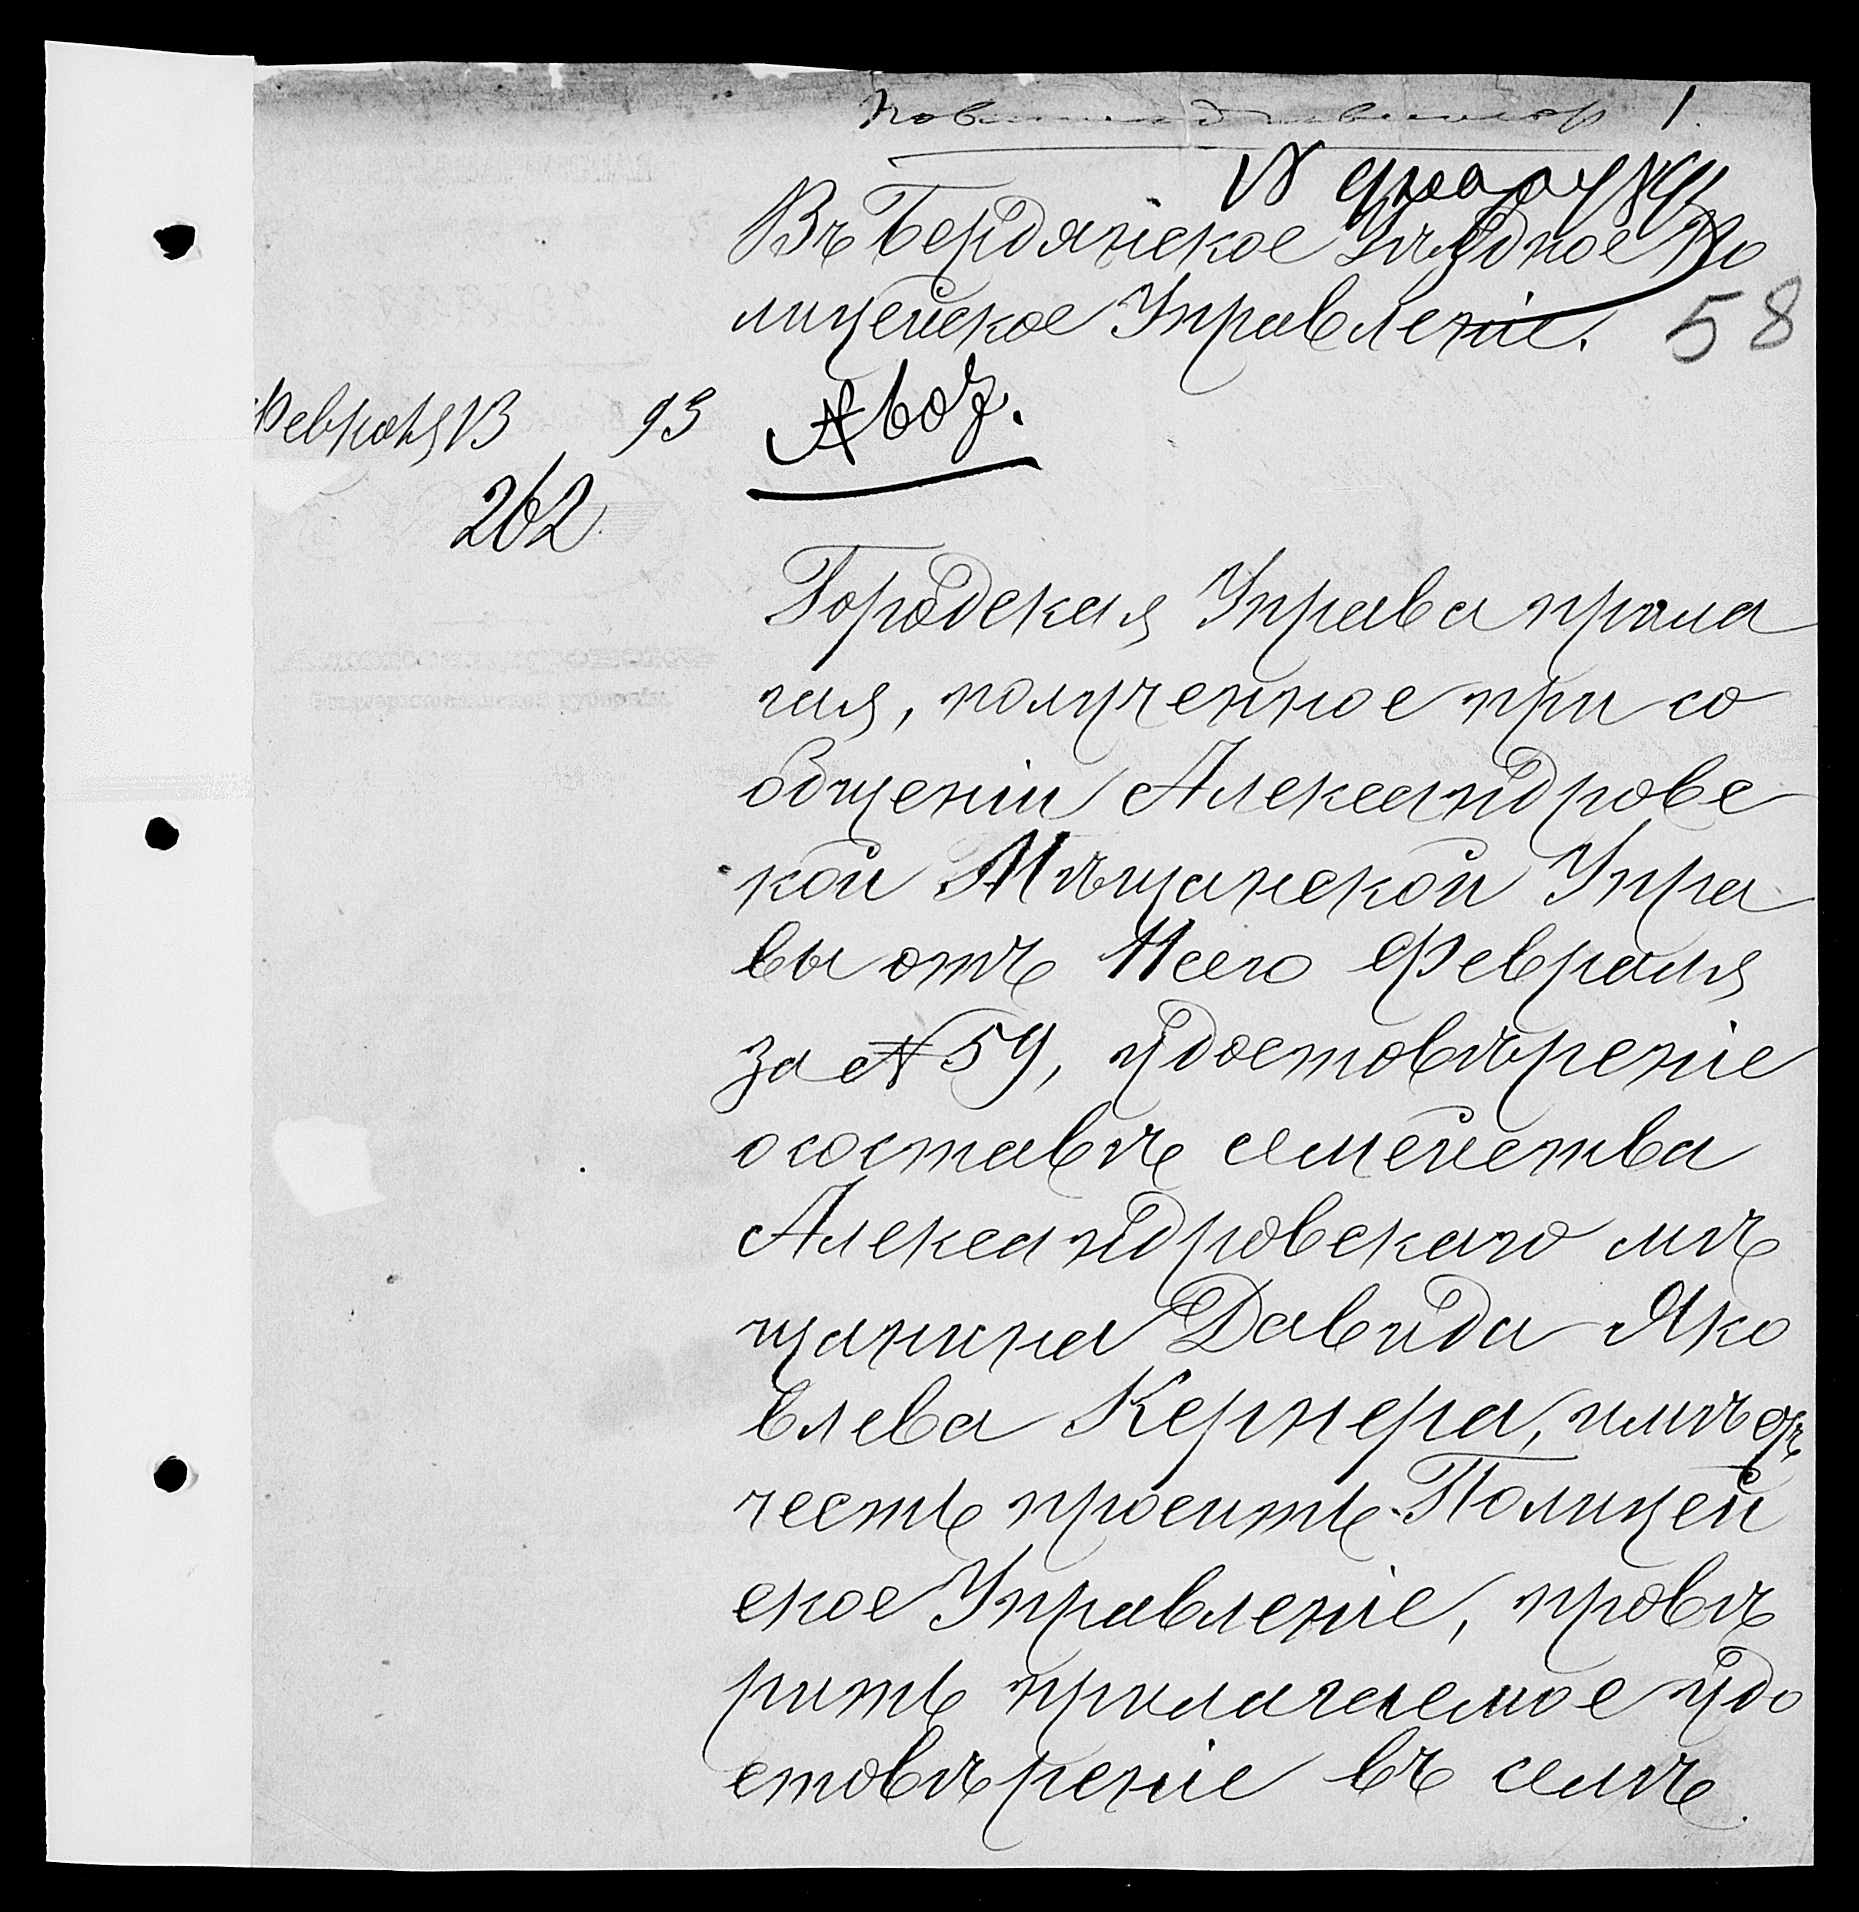 1.
Въ Бердянское Уѣздное По
лицейское Управленіе.
58
Февраля 13 93
262
Городская Управа прила
гая, полученное при со
общеніи Александровс
кой Мѣщанской Упра
вы отъ 11 сего Февраля
за № 59, удостовѣреніе
о составѣ семейства
Александровскаго мѣ
щанина Давида Яко
влева Кернера, имѣетъ
честь просить Полицей
ское Управленіе, провѣ
рить прилагаемое удо
стовѣреніе въ семъ